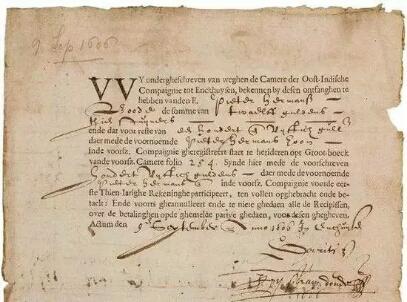 9 Sep 1606
VVY ondergheschreven van weghen de Camere der Oost-Indische
Compaignie tot Enckhuysen, bekennen by desen ontfanghen te
hebben vanden E. Pieter Hermansz
de somme van twaelff guldens
ende dat voor reste van een hondert vijftich
daer mede de voornoemde Pieter Hermansz
Inde voorsz. Compaignie gheregistreert staet te heridieren op't Groot-boeck
vande voorsz. Camere folio 254. Synde hier mede de voorschreven
hondert vijftich guldens daer mede de voornoemde
Pieter Hermansz inde voorsz. Compaignie voorde eer-
ste Thien-Iarighe Rekeninghe participeert, ten vollen opghebracht ende be-
taelt: Ende voorts gheannulleert ende te niete ghedaen alle de Recipissen,
over de betalinghen opde ghemelde partiye ghedaen, voor desen ghegheven.
Actum den 9 September 1606